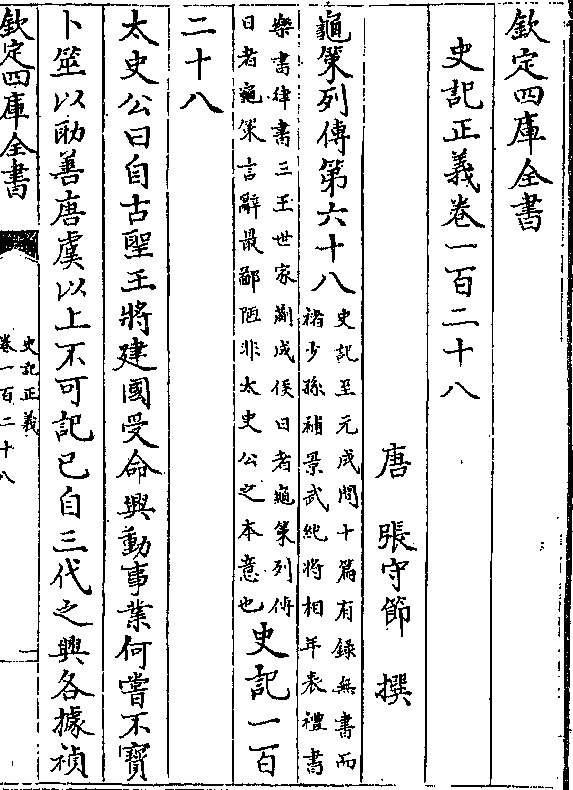 欽定四庫全書
史記正義卷一百二十八
唐 張守節 撰
龜策列傳第六十八
史記至元成間十篇有錄無書而
褚少孫補景武紀將相年表禮書
樂書律書三王世家蒯成侯日者龜策列傳
日者龜策言辭最鄙陋非太史公之本意也
史記一百
二十八
太史公曰自古聖王將建國受命興動事業何嘗不寶
卜筮以助善唐虞以上不可記已自三代之興各據禎
欽定四庫全書
史記正義
卷一百二十八
一